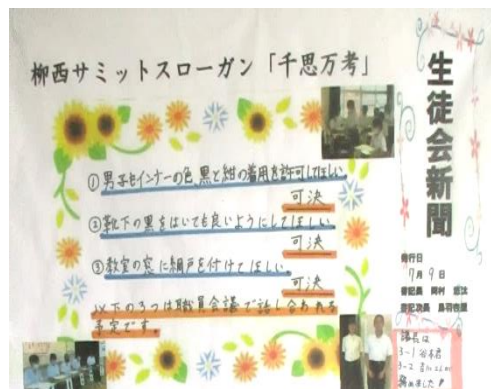 生徒会新聞
柳西サミットスローガン「千思万考」
①男子もインナーの色、黒と紺の着用を許可してほしい。
可決
②靴下の黒をはいても良いようにしてほしい。
可決
③教室の窓に網戸を付けてほしい。
可決
以下の3つは職員会議で話し合われる
予定です。
発行日
7月9日
書記長 岡村
書記次長 鳥羽
議長は
3-1 谷本君
3-2
務めました!